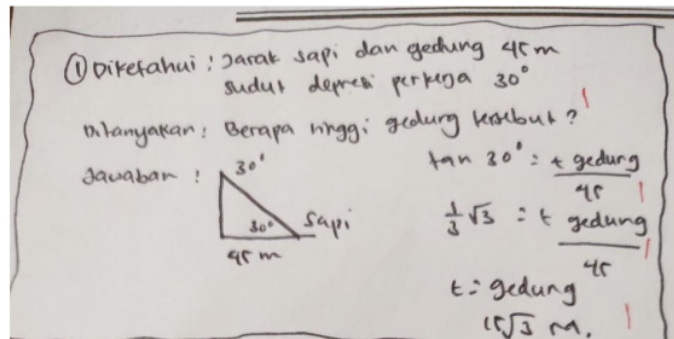 ① Diketahui : Jarak sapi dan gedung 45 m
sudut depresi pekerja 30°
Ditanyakan : Berapa tinggi gedung tersebut ?
Jawaban :
30°
30° sapi
45 m
tan 30° = t gedung / 45
1/3 √3 = t gedung / 45
t = gedung
15√3 m.